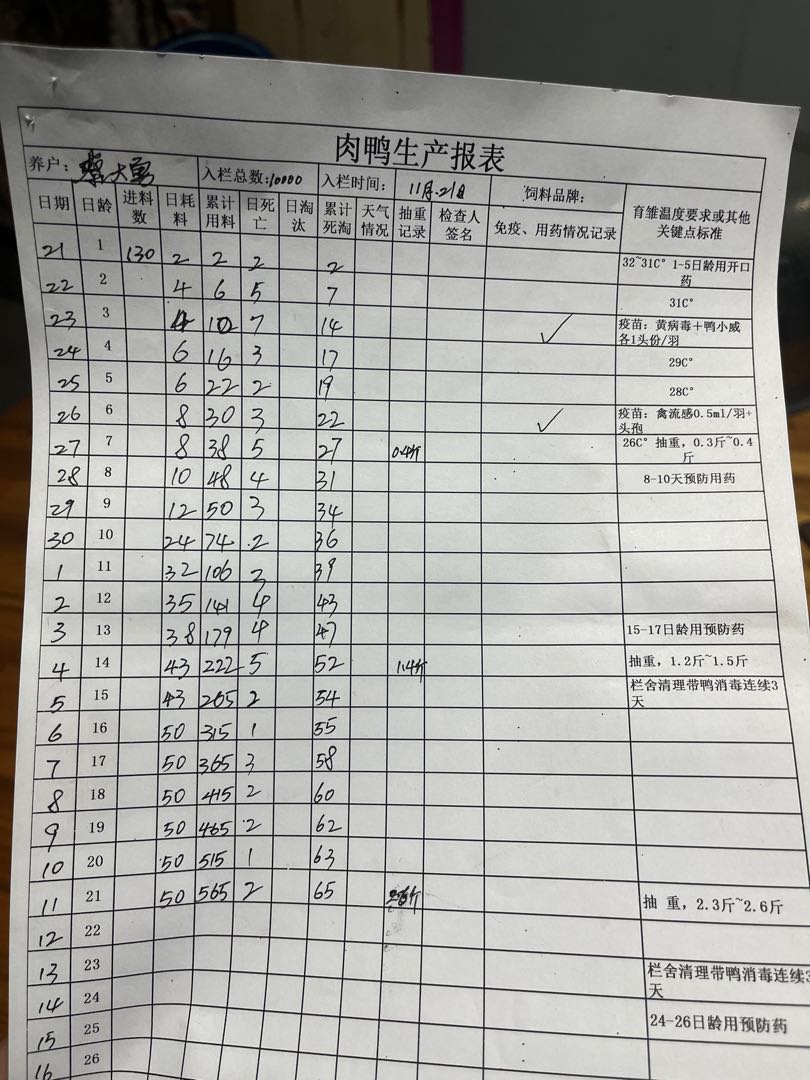 肉鸭生产报表
养户: 大勇 入栏总数:10000 入栏时间: 11月.21日 饲料品牌:
日期 日龄 进料数 日耗料 累计用料 日死亡 日淘汰 累计死淘 天气情况 抽重记录 检查人签名 免疫、用药情况记录 育雏温度要求或其他关键点标准
21 1 130 2 2 2 2 32~31C° 1-5日龄用开口药
22 2 4 6 5 7 31C°
23 3 4 10 7 14 ✓ 疫苗: 黄病毒+鸭小威各1头份/羽
24 4 6 16 3 17 29C°
25 5 6 22 2 19 28C°
26 6 8 30 3 22 ✓ 疫苗: 禽流感0.5ml/羽+头孢
27 7 8 38 5 27 0.4斤 26C° 抽重, 0.3斤~0.4斤
28 8 10 48 4 31 8-10天预防用药
29 9 12 50 3 34
30 10 24 74 2 36
1 11 32 106 3 39
2 12 35 141 4 43
3 13 38 179 4 47 15-17日龄用预防药
4 14 43 222 5 52 1.4斤 抽重, 1.2斤~1.5斤
5 15 43 265 2 54 栏舍清理带鸭消毒连续3天
6 16 50 315 1 55
7 17 50 365 3 58
8 18 50 415 2 60
9 19 50 465 2 62
10 20 50 515 1 63
11 21 50 565 2 65 抽 重, 2.3斤~2.6斤
12 22
13 23 栏舍清理带鸭消毒连续3天
14 24
15 25 24-26日龄用预防药
16 26